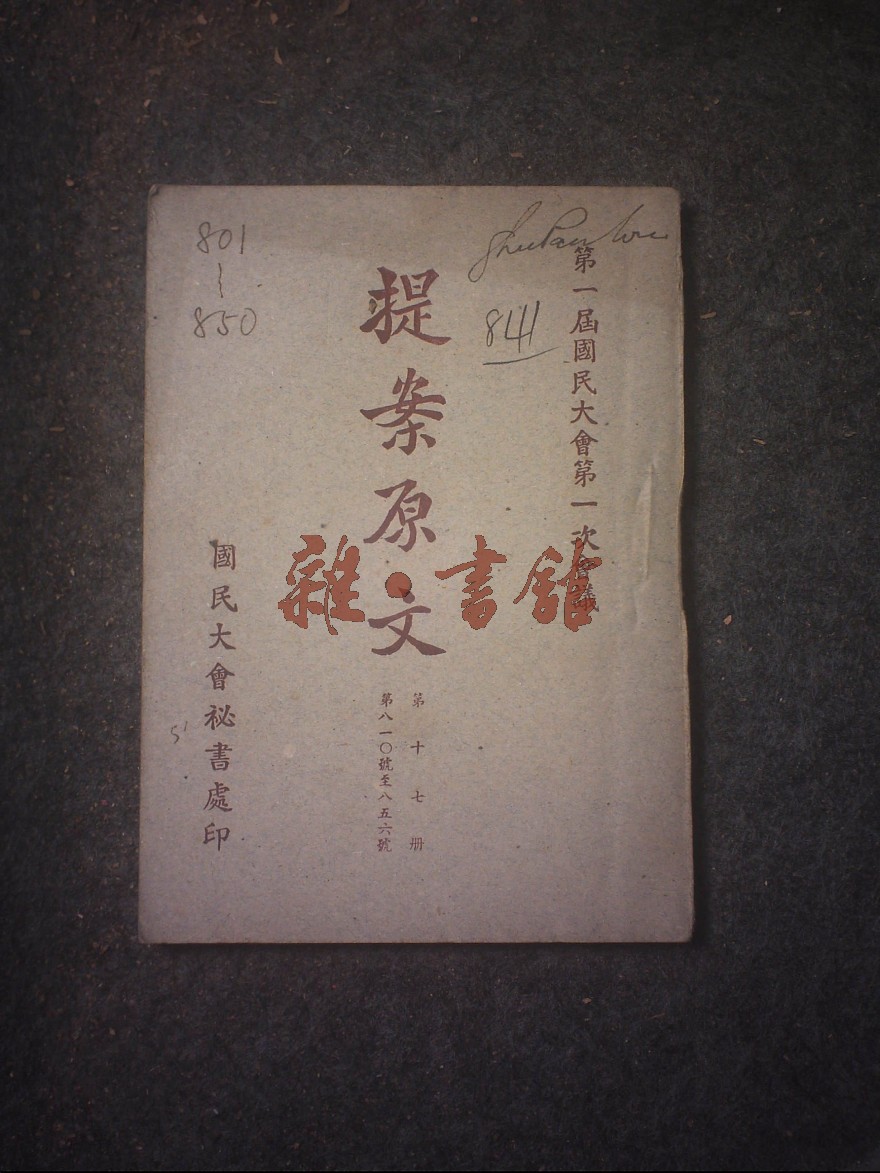 第一屆國民大會第一次會議
提案原文
第十七冊
第八一〇號至八五六號
國民大會祕書處印
801
850
841
51
雜·書館